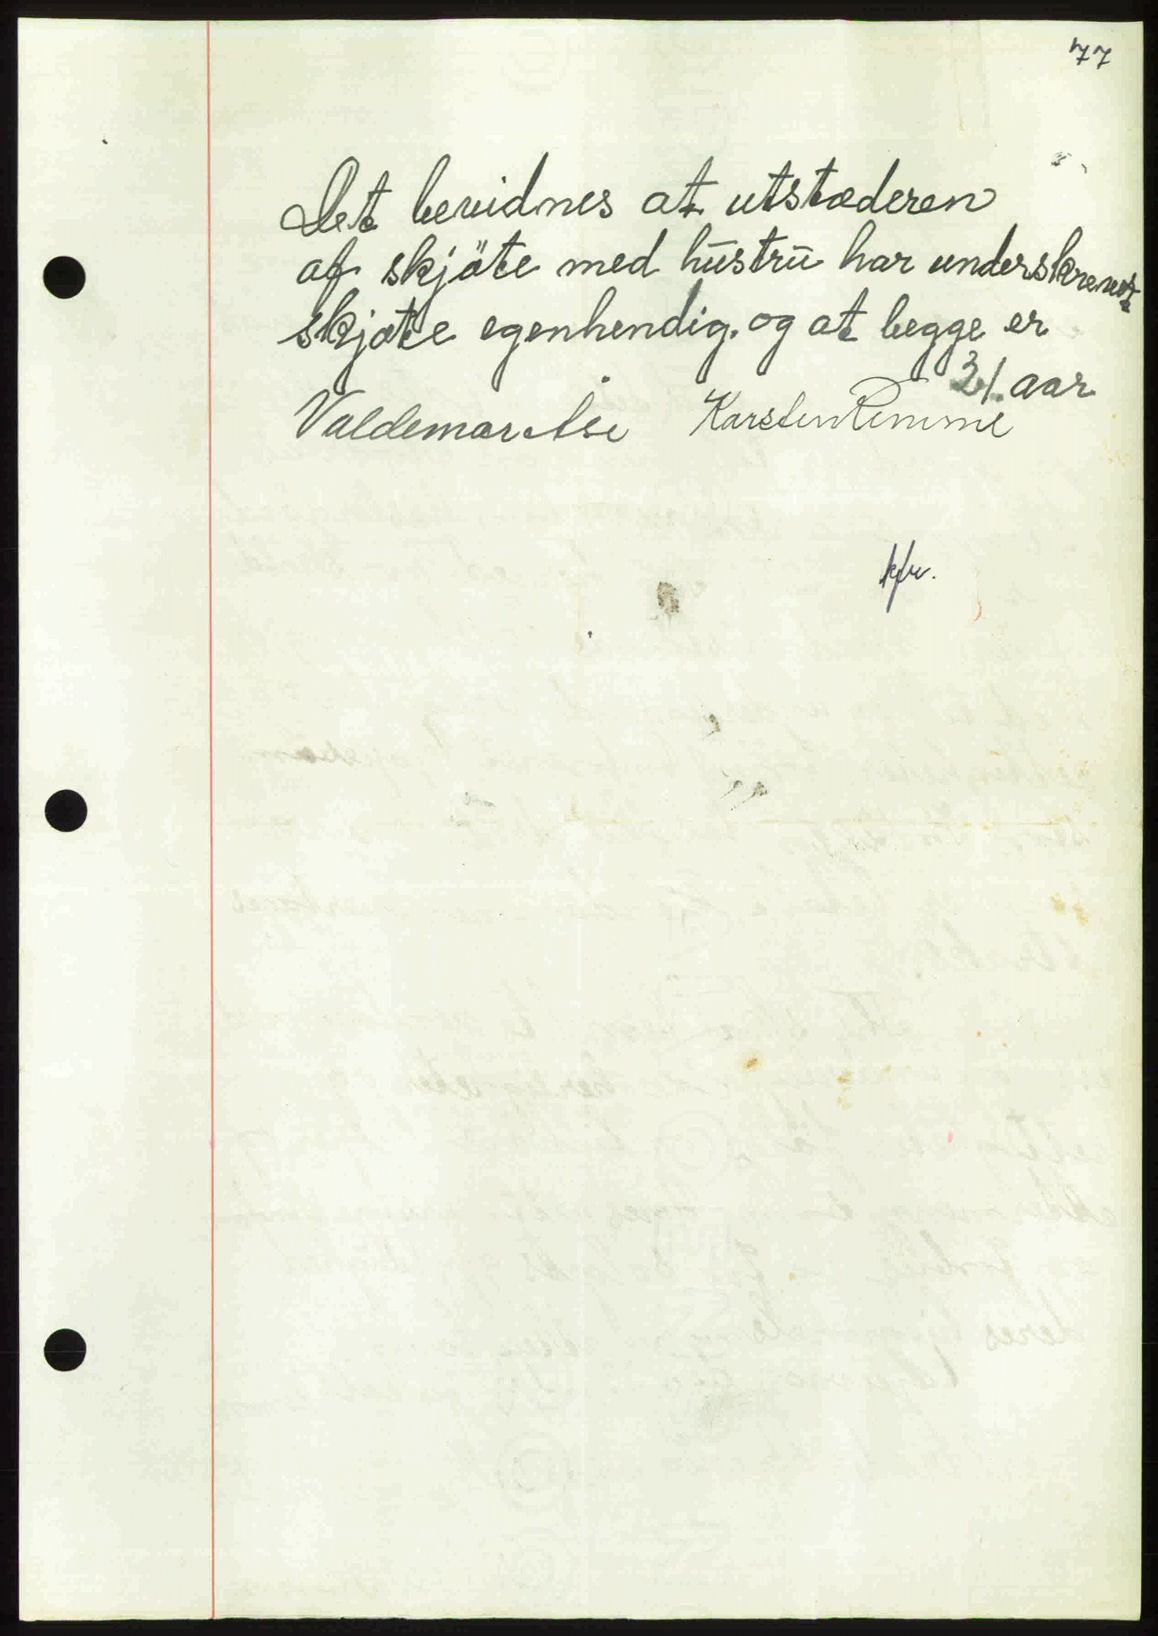 77
Det bevidnes at utstæderen
af skjöte med hūstrū har underskrevet
skjøte egenhendig. og at begge er
21 aar
Valdemar Åse Karsten Remme
kfr.